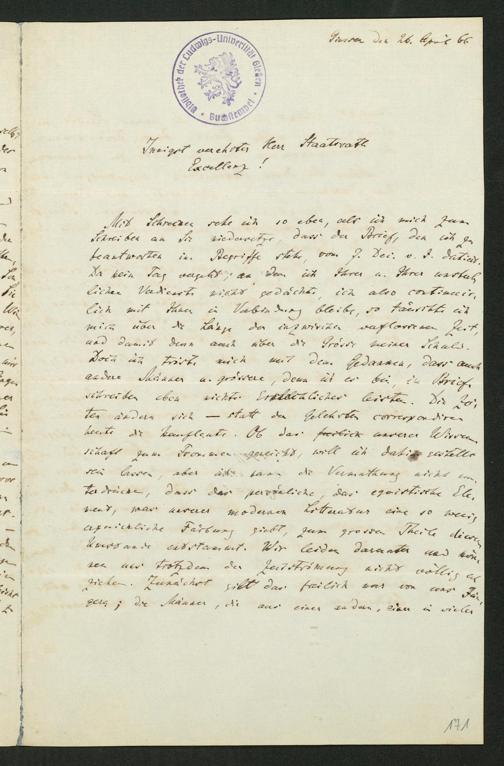 Giessen den 26. April 66
Bibliothek der Ludwigs-Universität Gießen
Buchstempel
Innigst verehrter Herr Staatsrath
Excellenz!
Mit Schrecken sehe ich so eben, als ich mich zum
Schreiben an Sie niedersetze, dass der Brief, den ich zu
beantworten im Begriffe stehe, vom 7. Dec. v. J. datiert.
Da kein Tag vergeht, an dem ich Ihrer u. Ihrer unsterb
lichen Verdienste nicht gedächte, ich also continuier
lich mit Ihnen in Verbindung bleibe, so täuschte ich
mich über die Länge der inzwischen verflossenen Zeit,
und damit denn auch über die Grösse meiner Schuld.
Doch ich tröste mich mit dem Gedanken, dass auch
andere Männer u. grössere, denn ich es bin, in Brief
schreiben eben nichts Erkleckliches leisten. Die Zei
ten ändern sich — statt der Gelehrten correspondiren
heute die Kaufleute. Ob das unserer Wissen
schaft zum Frommen gereicht, will ich dahin gestellt
sein lassen, aber ich kann die Vermuthung nicht un
terdrücken, dass das persönliche, das egoistische Ele
ment, was unserer modernen Litteratur eine so wenig
erquickliche Färbung giebt, zum grossen Theile diesem
Umstande entstammt. Wir leiden darunter und kön
nen uns trotzdem der Zeitströmung nicht völlig ent
ziehen. Zunächst gilt das freilich nur von uns Jün
gern; die Männer, die aus einer andern, einer in vieler
171